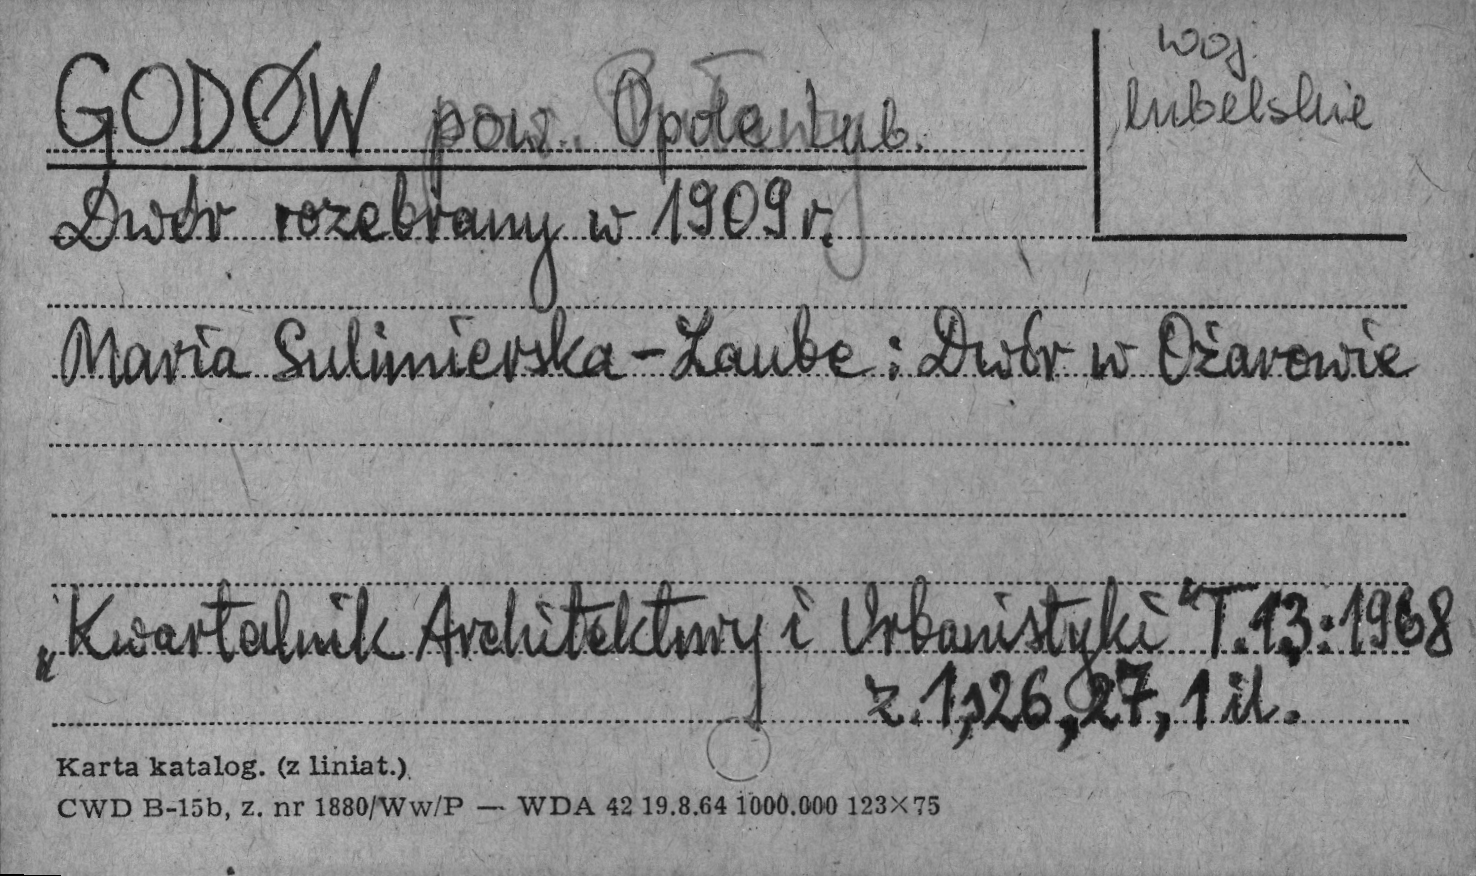 GODÓW pow. Opole Lub.
woj.
lubelskie
Dwór rozebrany w 1909 r.
Maria Sulimierska-Laube: Dwór w Ożarowie
„Kwartalnik Architektury i Urbanistyki" T.13:1968
z.1, s26,27, 1 il.
Karta katalog. (z liniat.)
CWD B-15b, z. nr 1880/Ww/P — WDA 42 19.8.64 1000.000 123×75